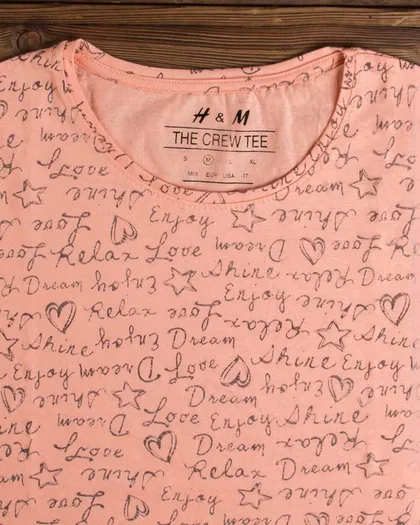 H & M
THE CREW TEE
S M L XL
MIX EUR USA IT
Enjoy Shine Dream
Enjoy Shine Love Dream
Shine Enjoy Dream
Love Enjoy Shine Love
Relax Love Dream Relax Love
Dream Enjoy Shine Relax Dream
Relax Love Enjoy Shine
Shine Enjoy Dream Relax Shine
Enjoy Dream Love Shine Enjoy
Shine Dream Enjoy Relax
Dream Love Enjoy Shine
Love Dream Relax
Shine Relax Dream
Love Enjoy Shine